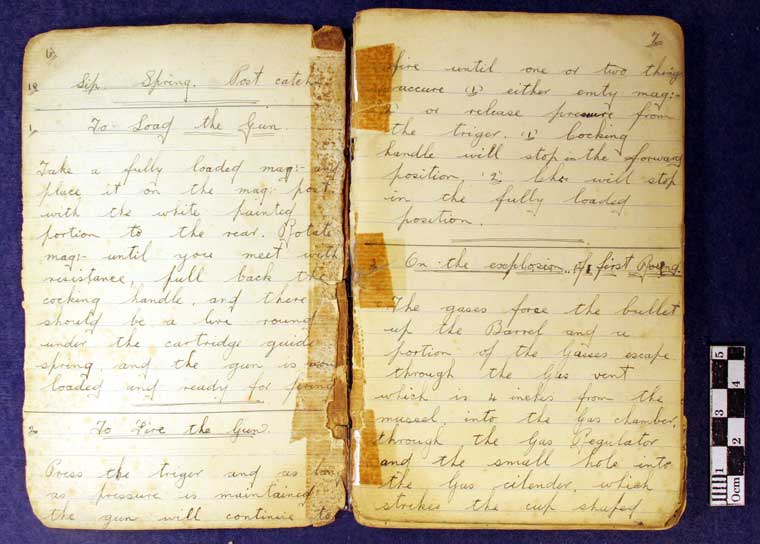 6
18 Sip. Spring. Post catch
1 To Load the Gun.
Take a fully loaded mag:- and
place it on the mag: post
with the white painted
portion to the rear. Rotate
mag:- until you meet with
resistance, pull back the
cocking handle, and there
should be a live round
under the cartridge guide
spring, and the gun is now
loaded and ready for firing
2 To Fire the Gun.
Press the triger and as long
as pressure is maintained
the gun will continue to
7
fire until one or two things
accure (1) either emty mag:-
2 or release pressure from
the triger. (1) Cocking
handle will stop in the forward
position. (2) will stop
in the fully loaded
position.
3 On the explosion of first Round.
The gases force the bullet
up the Barrel and a
portion of the Gasses escape
through the Gas vent
which is 4 inches from the
mussel, into the Gas chamber,
through the Gas Regulator
and the small hole into
the Gas cilender, which
strikes the cup shaped
1
2
3
4
5
0cm